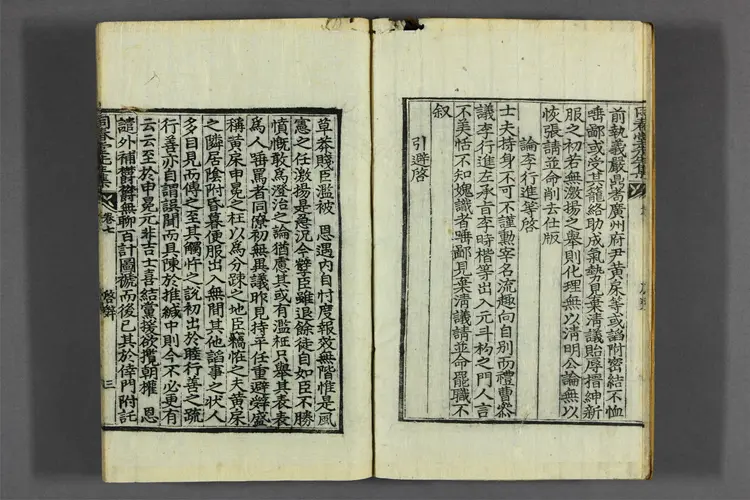 前執義嚴鼎耉廣州府尹黃㦿等或諂附密結不恤
唾鄙或受其籠絡助成氣勢見棄淸議貽辱搢紳新
服之初若無激揚之擧則化理無以淸明公論無以
恢張請並命削去仕版
論李行進等啓
士夫持身不可不謹勳宰名流趣向自別而禮曹叅
議李行進左承旨李時楷等出入元斗杓之門人言
不美恬不知媿識者唾鄙見棄淸議請並命罷職不
叙
引避啓
草莽賤臣濫被 恩遇內自忖度報效無階惟是風
憲之任激揚是急况今孼臣雖退餘徒自如臣不勝
憤慨敢爲澄治之論猶慮其或有濫枉只擧其表表
爲人唾罵者同僚初無異議昨見持平任重避辭盛
稱黃㦿申冕之枉以爲分踈之地臣竊恠之夫黃㦿
之隣居陰附昏暮便服出入無間其他諂事之狀人
多目見而傳之至其觸忤之說初出於睦行善之疏
行善亦自謂誤聞而具陳於推緘中則今不必更有
云云至於申冕元非吉士喜結黨援欲攬朝權 恩
譴外補鬱鬱無聊百計圖褫而後已其於倖門附託
卷七 啓辭 三